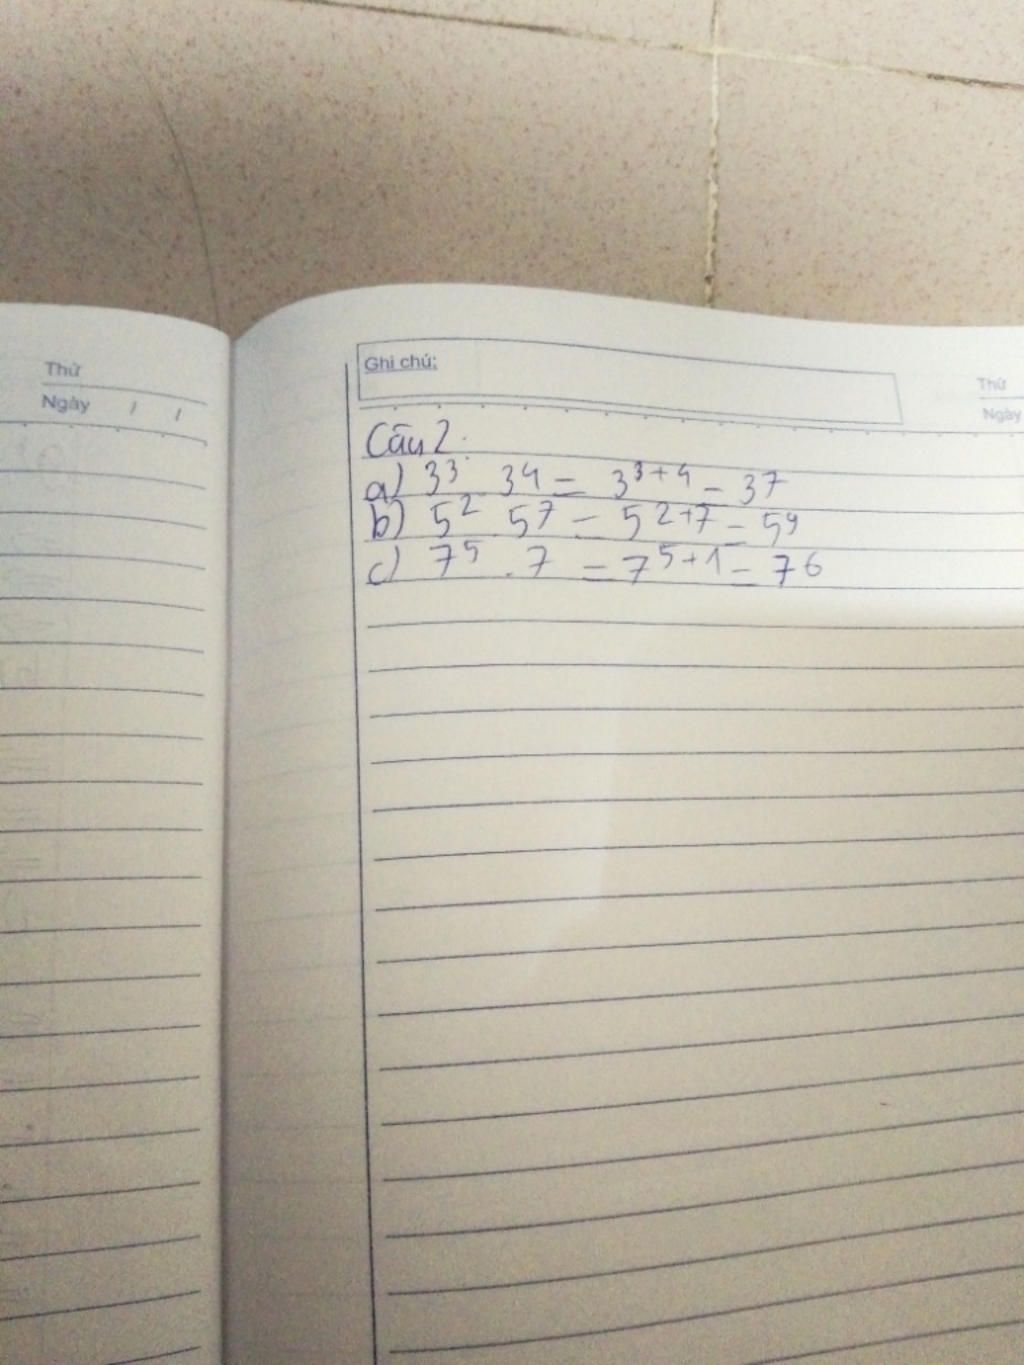 Thứ
Ngày / /
Ghi chú:
Thứ
Ngày
Câu 2:
a) 3³ 3⁴ = 3³⁺⁴ = 3⁷
b) 5² . 5⁷ = 5²⁺⁷ = 5⁹
c) 7⁵ . 7 = 7⁵⁺¹ = 7⁶